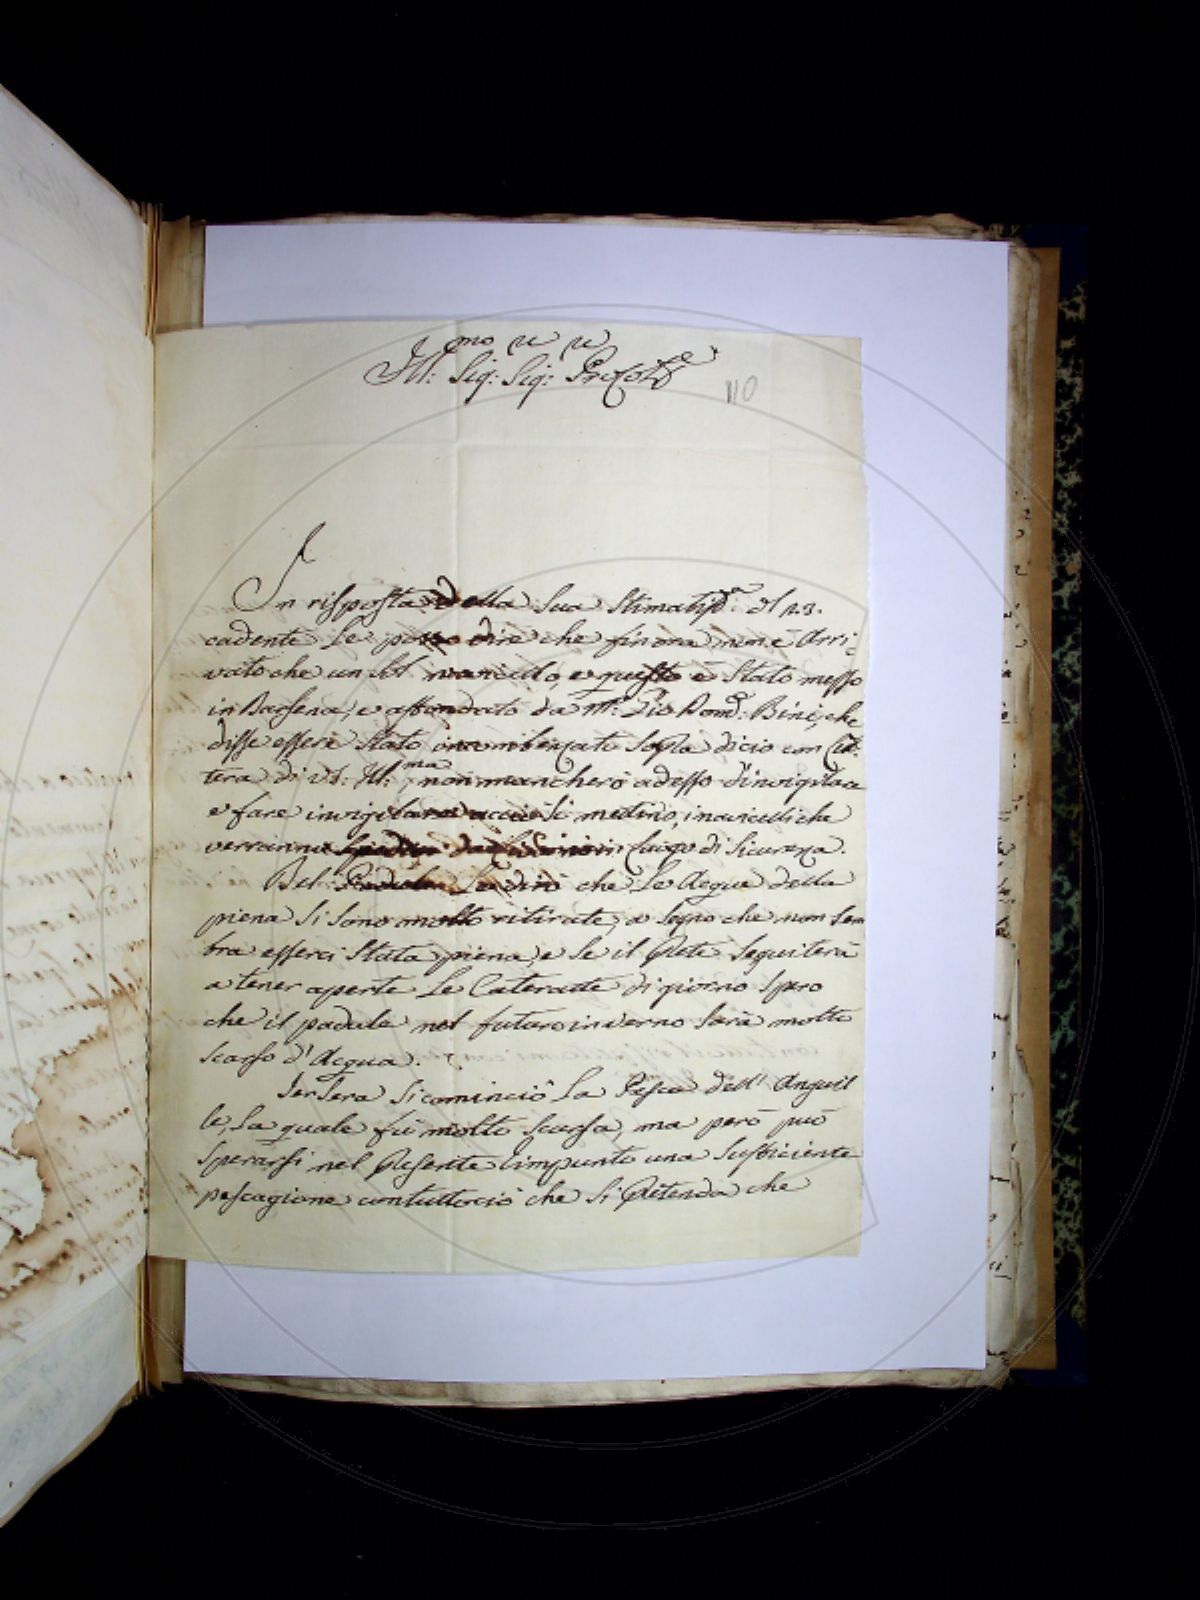 Ill:mo Sig:re Sig:re Pr͠o Col͠mo
110
In risposta della Sua Stimatiss͠a del 23.
cadente Le posso dire che finora non è Arri-
vato che un Sol navicello, e questo è Stato messo
in Darsena, e affondato da Mr: Gio Dom͠o: Bini, che
disse essere Stato incombenzato Sopra di cio con Let-
tera di VS: Ill:ma, non mancherò adesso d'invigilare
e fare invigilare acciò Si mettino, i navicelli che
verranno in Luogo di Sicurezza.
Del Padule Le dirò che Le Acque della
piena Si Sono molto ritirate, a Segno che non Sem
bra esserci Stata piena, e Se il Prete Seguiterà
a tener aperte Le Cateratte di giorno Spero
che il padule nel futuro inverno Sarà molto
Scarso d'Acqua.
JerSera Si cominciò La Pesca dell' Anguil
le, La quale fù molto Scarsa, ma però può
Sperarsi nel Presente Limpunto una Sufficiente
pescagione contuttociò che Si Pretenda che